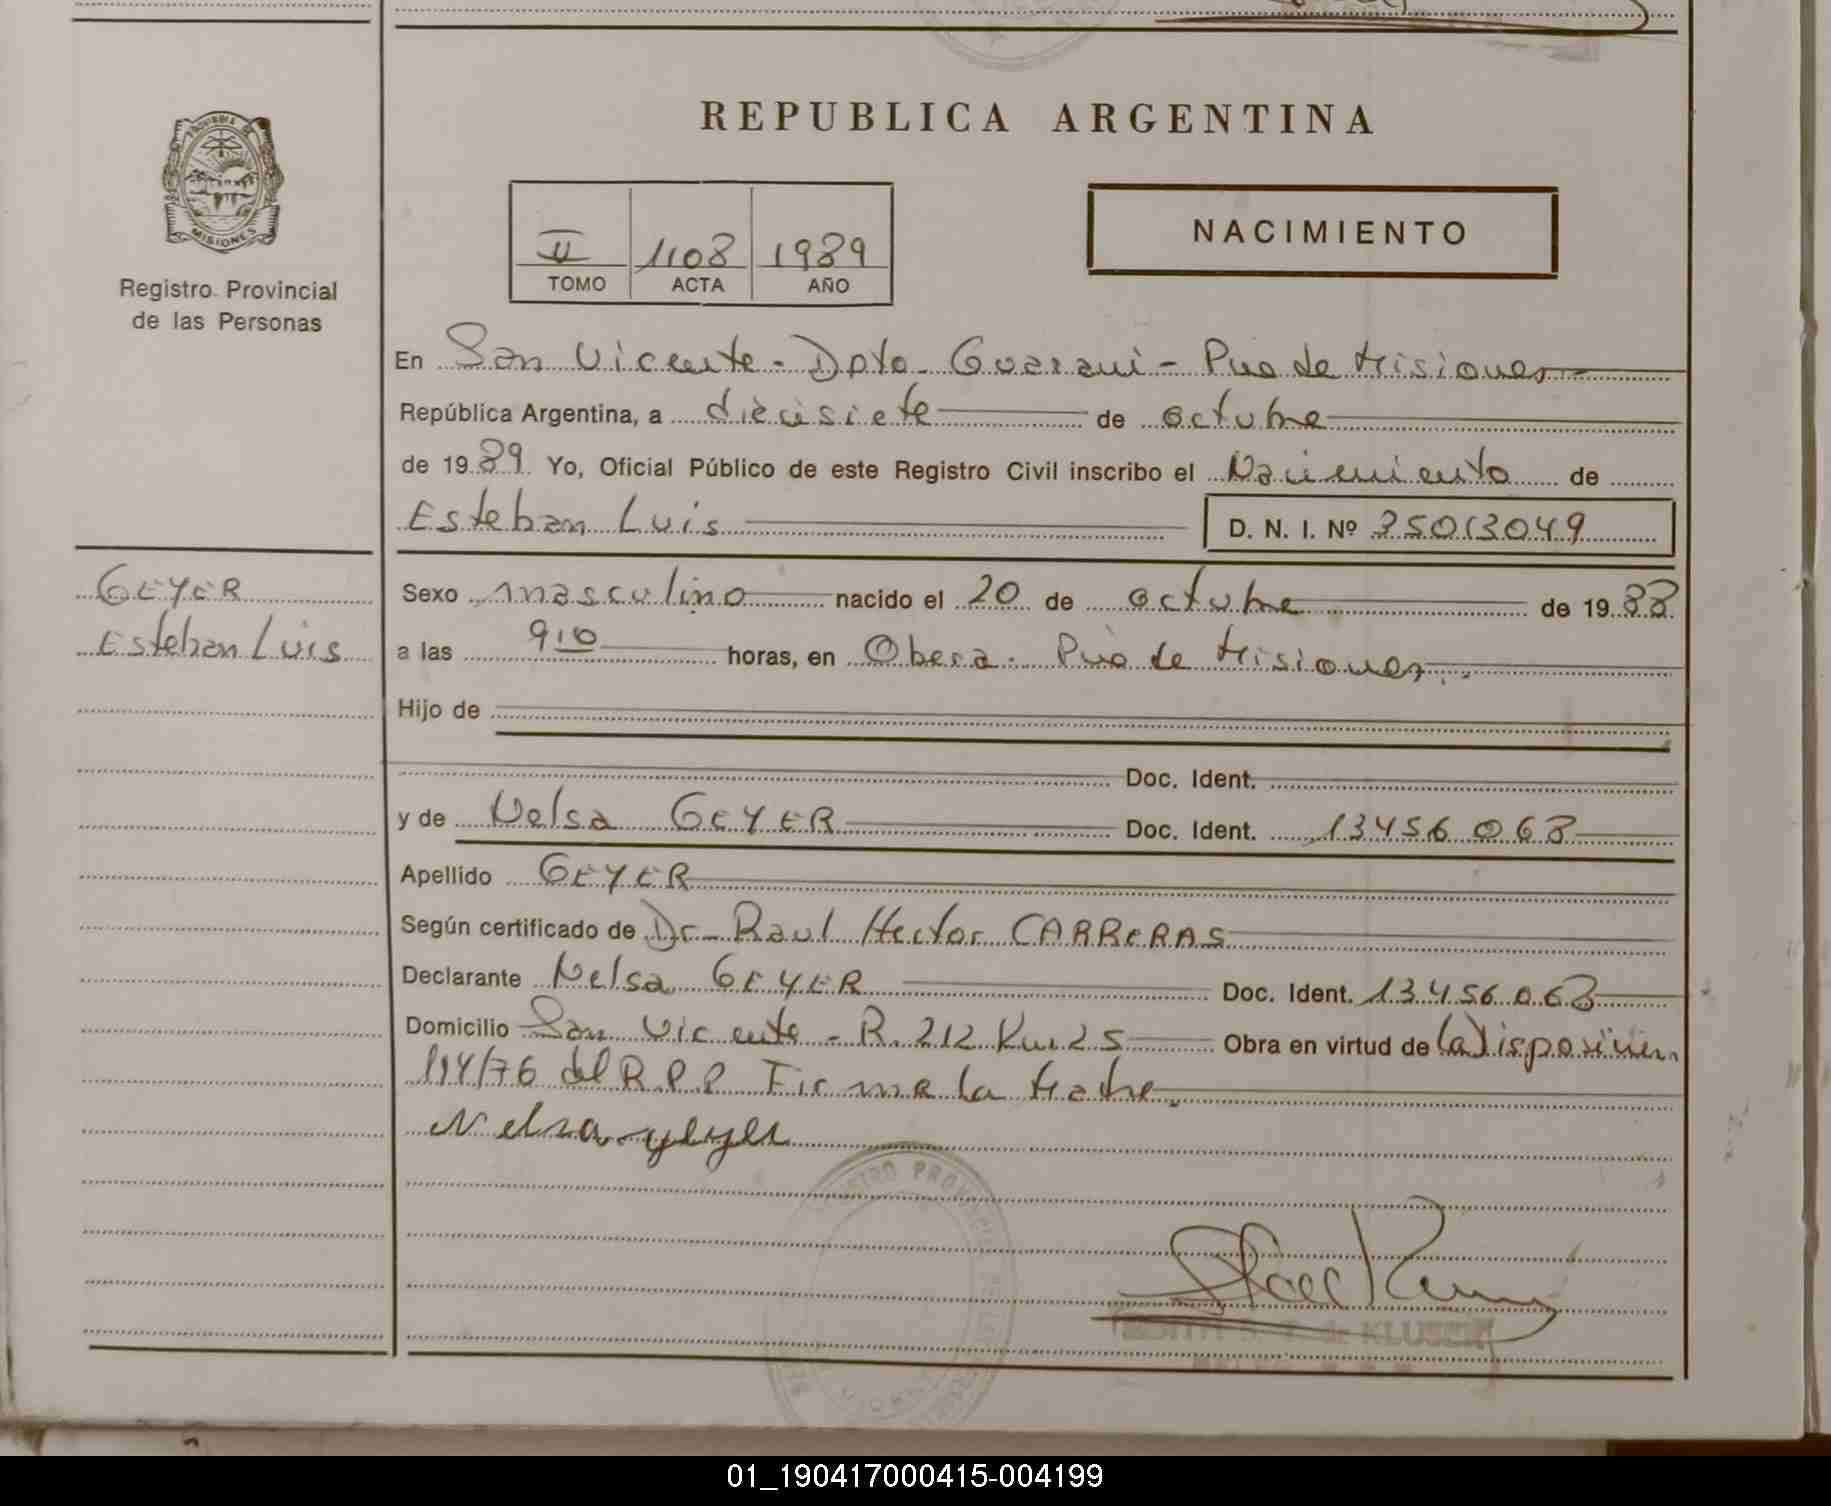 REPUBLICA ARGENTINA
PROVINCIA DE
MISIONES
Registro Provincial
de las Personas
II 1108 1989
TOMO ACTA AÑO
NACIMIENTO
En San Vicente - Dpto. Guarani - Pcia de Misiones
República Argentina, a diecisiete de octubre
de 1989 Yo, Oficial Público de este Registro Civil inscribo el Nacimiento de
Esteban Luis D. N. I. Nº 35013049
GEYER
Esteban Luis
Sexo masculino nacido el 20 de octubre de 1988
a las 9,10 horas, en Obera. Pcia de Misiones
Hijo de
Doc. Ident.
y de Nelsa GEYER Doc. Ident. 13456068
Apellido GEYER
Según certificado de Dr. Raul Hector CARRERAS
Declarante Nelsa GEYER Doc. Ident. 13456068
Domicilio San Vicente - R. 212 Km 25 Obra en virtud de la Disposición
114/76 del R.P.P Firma la Madre.
Nelsa geyer
REGISTRO PROVINCIAL DE LAS PERSONAS
KLUSEN
01_190417000415-004199